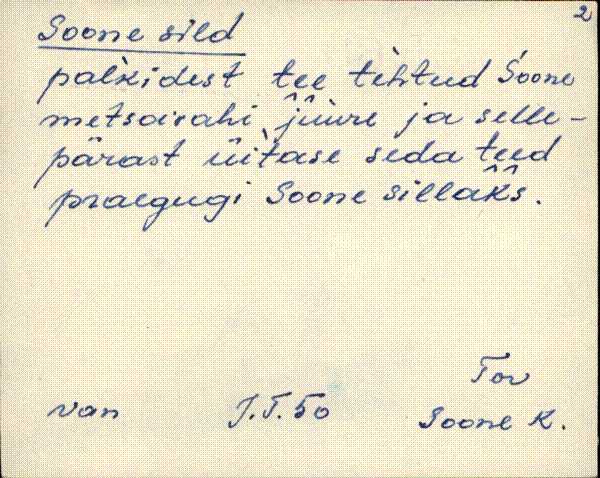 2
Soone sild
palkidest tee tehtud Soone
metsavahi jũũre ja selle-
pärast üitase seda teed
praegugi Soone sillaks.
Tor
van J.T. 50 Soone K.